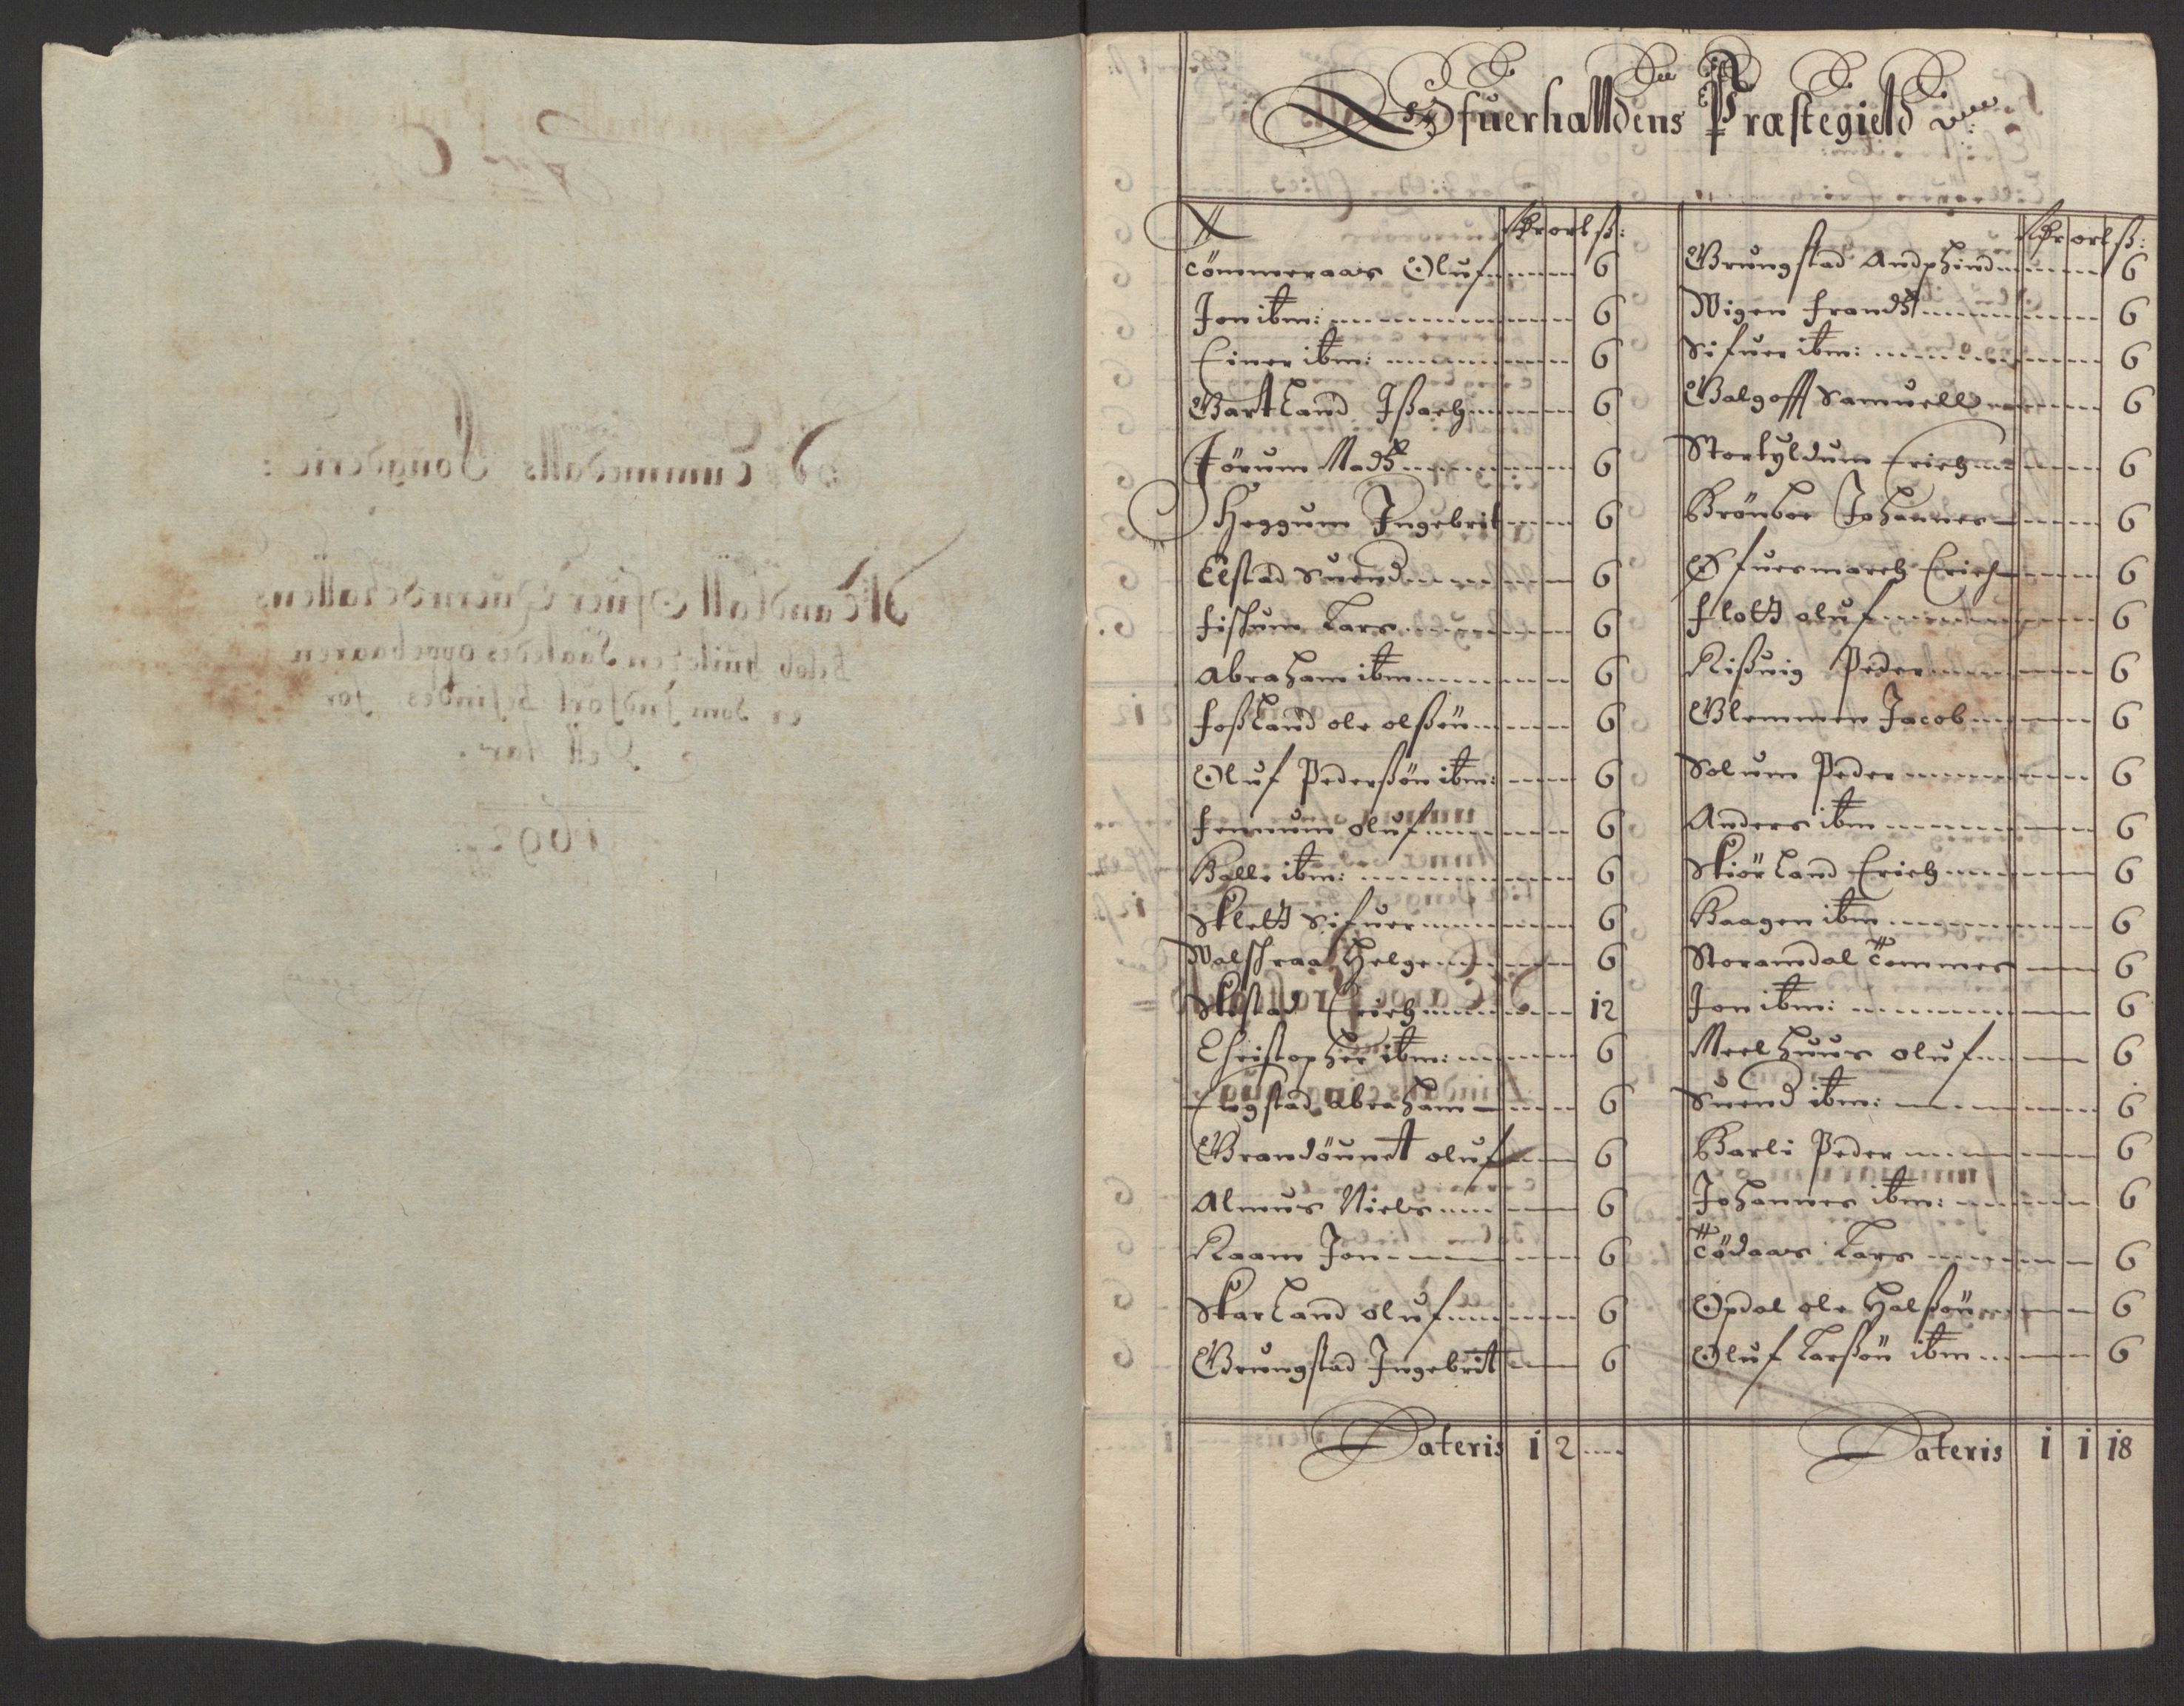 Ofuerhalldens Præstegield
Rdr ort ß:
Tömmeraas Oluf 6
Jon ibm: 6
Einer ibm: 6
Bartland Ißach 6
Jörum Madß 6
Heggum Ingebrit 6
Elstad Suend 6
Fishum Lars 6
Abraham ibm 6
Foßland ole olßön 6
Oluf Pederßön ibm: 6
Femum oluf 6
Halle ibm: 6
Sklett Sifuer 6
Walschraa Helge 6
Skistad Erich 12
Christopher ibm: 6
Flogstad Abraham 6
Brandöunet oluf 6
Almus Niels 6
Raam Jon 6
Skarland oluf 6
Brungstad Ingebrit 6
Lateris 1 2
Rdr ort ß:
Brungstad Andphind 6
Wigen frandß 6
Sifuer ibm: 6
Galgoff Samuell 6
Stortyldum Erich 6
Brönboe Johannes 6
Øfuermarch Erich 6
Flott oluf 6
Rißuig Peder 6
Glemmen Jacob 6
Solum Peder 6
Anders ibm 6
Skiörland Erich 6
Haagen ibm 6
Storamdal Tommes 6
Jon ibm: 6
Meelhuus oluf 6
Suend ibm: 6
Barli Peder 6
Johannes ibm: 6
Tödaas Lars 6
Opdal ole Halßön 6
Oluf Larßön ibm 6
Lateris 1 1 18